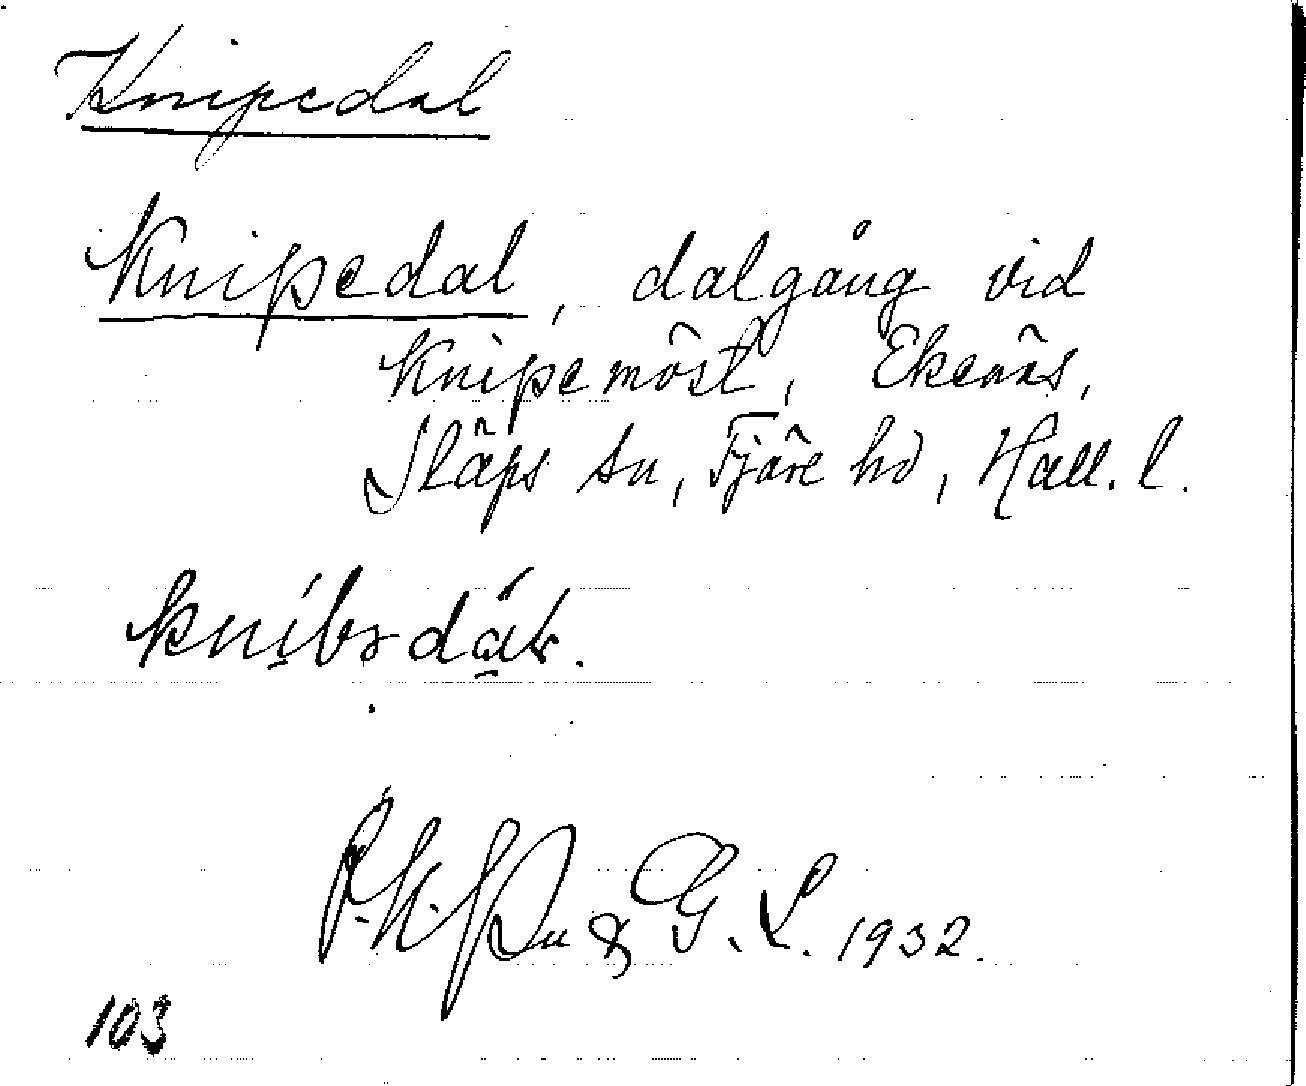 Knipedal
Knipedal, dalgång vid
Knipemöst, Ekenäs,
Släps sn, Fjäre hd, Hall. l.
& G. L. 1932.
103